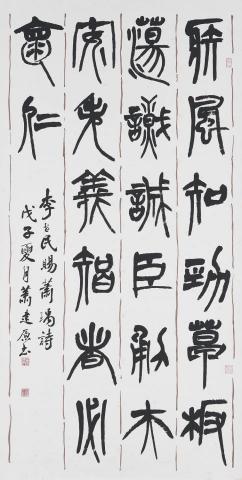 疾風知勁草板
蕩識誠臣勇夫
安義智者必
懷仁
李世民賜蕭瑀詩
戊子夏月蕭建